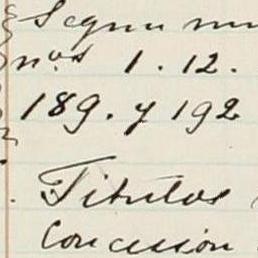 Segun
nos 1. 12.
189. y 192
Titulos
Concesión